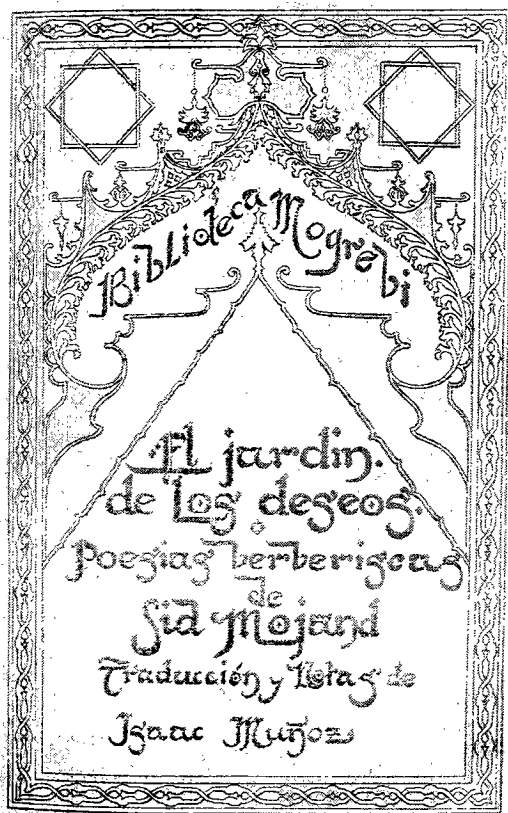 Biblioteca Mogrebi
El jardin.
de Los deseos.
o
Poesias berberiscas
de
Sid Mojand
Traducción y Notas de
Isaac Muñoz